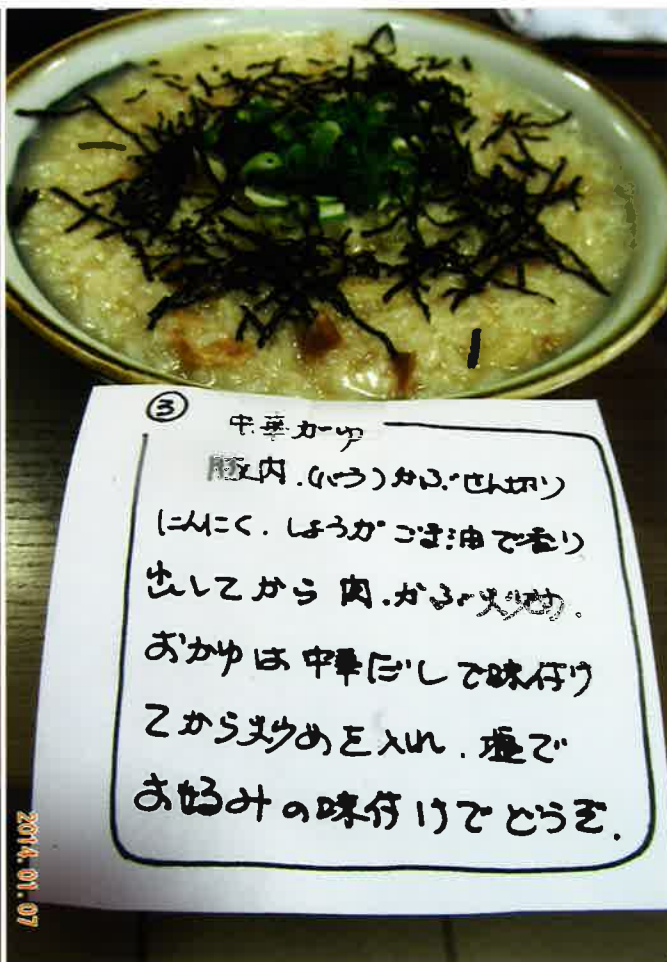 ③
中華がゆ
豚肉.(バラ)かぶせん切り
にんにく.しょうがごま油で香り
出してから肉.かぶ炒め.
おかゆは中華だしで味付け
てから炒めを入れ.塩で
お好みの味付けでどうぞ.
2014.01.07